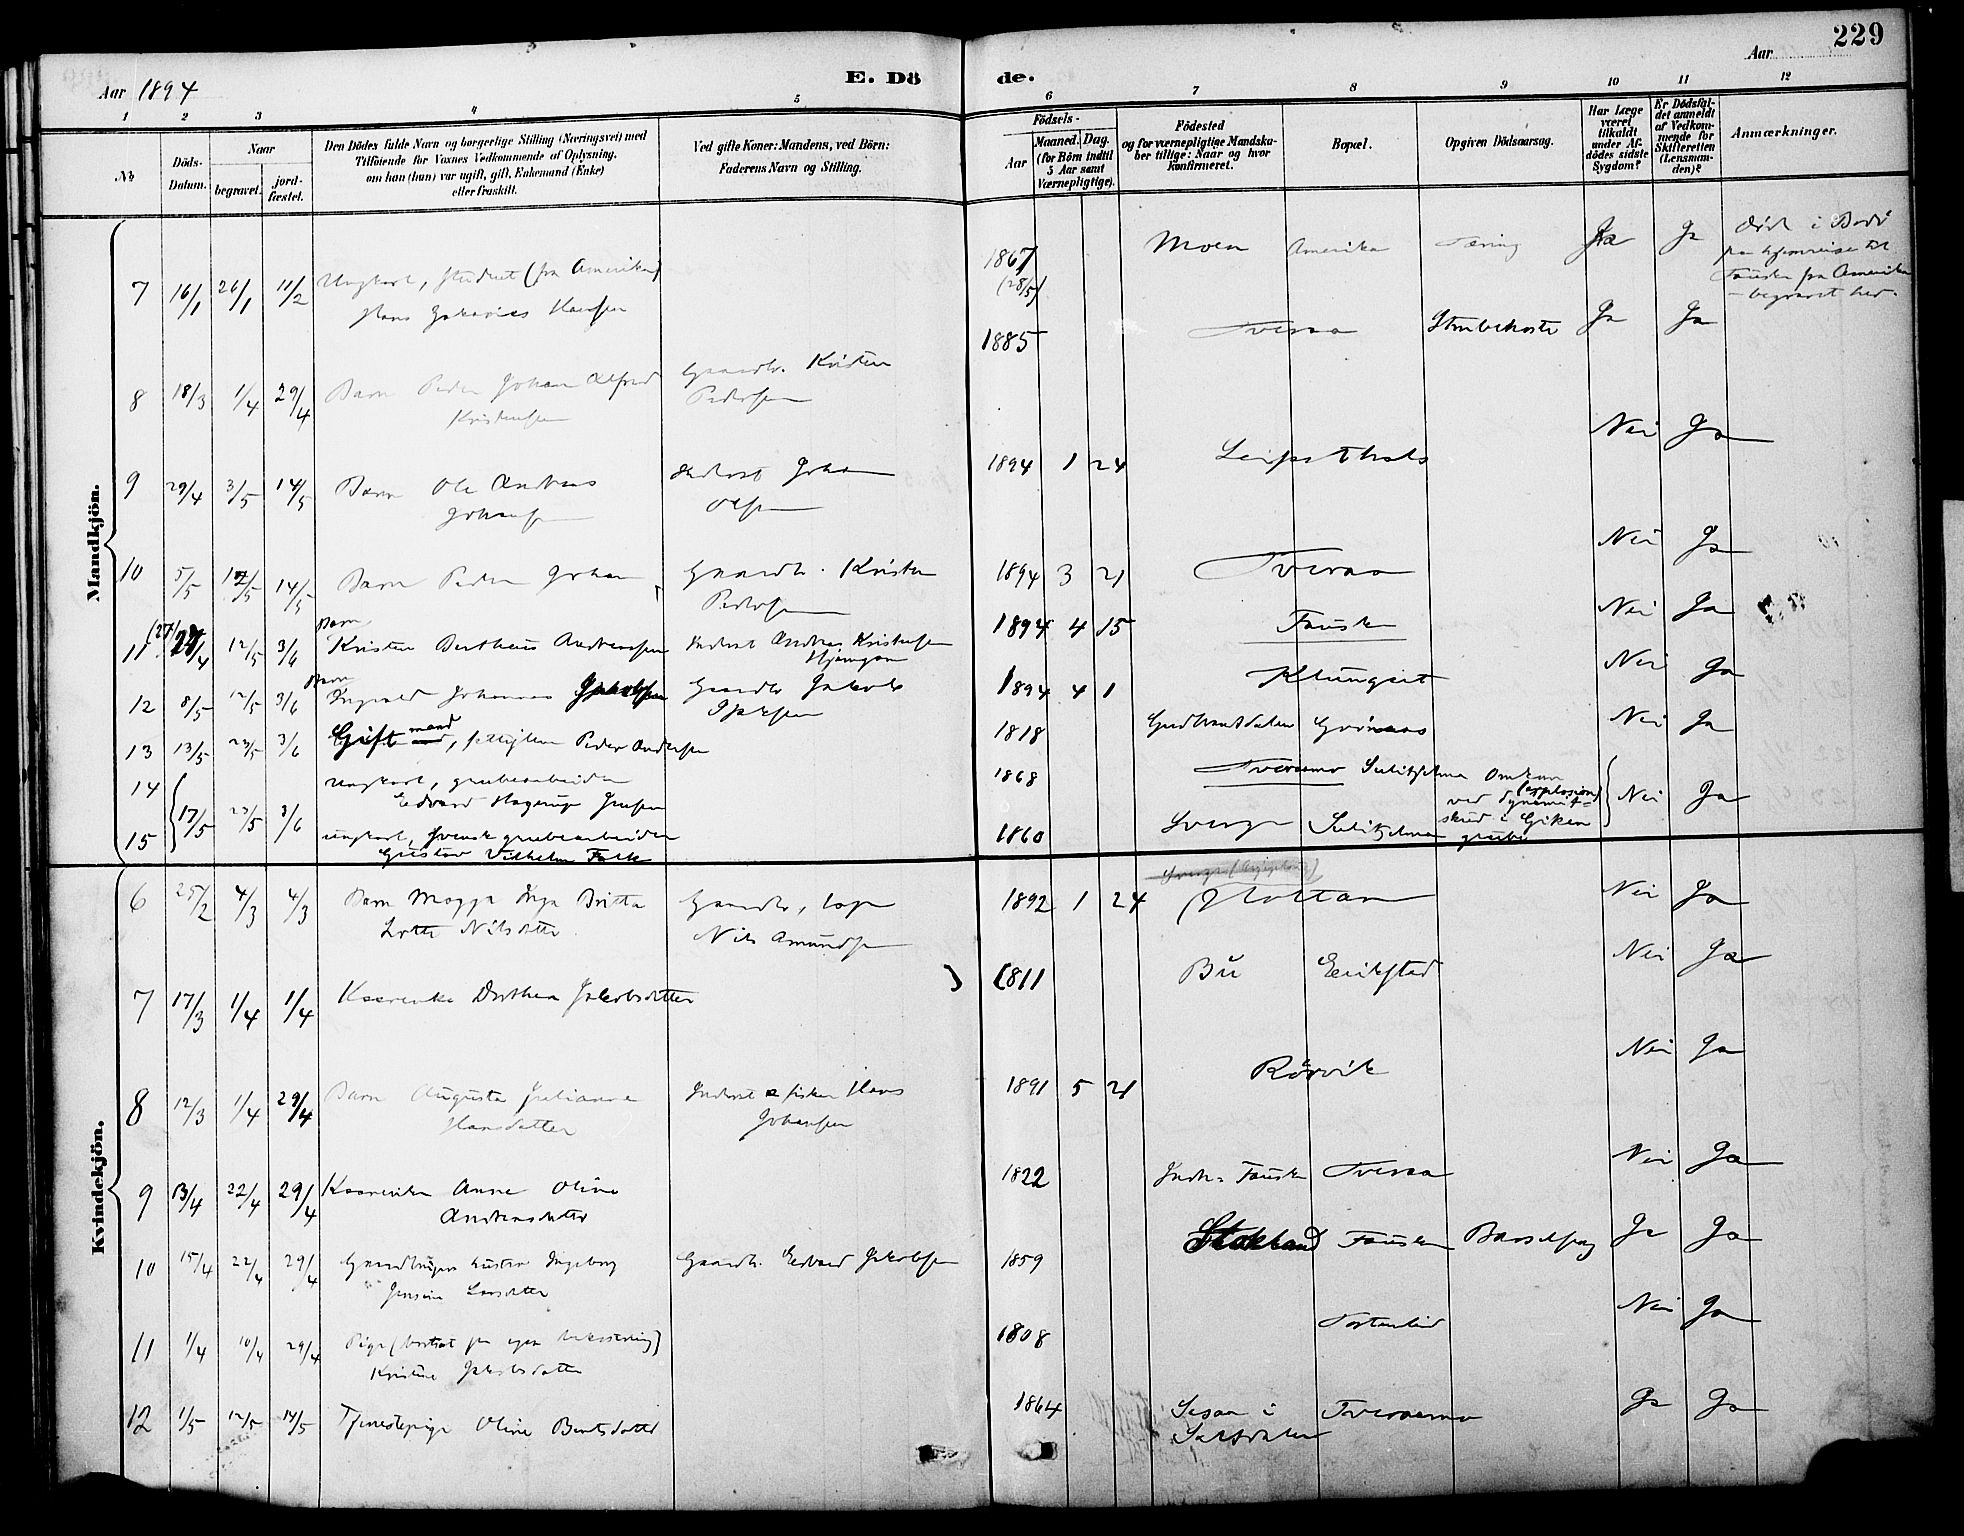 229
Aar 1894
E. Dö de.
Aar
1 2 3 4 5 6 7 8 9 10 11 12
№
Döds-Datum.
Naar
begravet.
jord-fæstet.
Den Dödes fulde Navn og borgerlige Stilling (Næringsvei) med
Tilföiende for Voxnes Vedkommende af Oplysning,
om han (hun) var ugift, gift, Enkemand (Enke)
eller fraskilt.
Ved gifte Koner: Mandens, ved Börn:
Faderens Navn og Stilling.
Födsels-
Aar
Maaned. Dag.
(for Börn indtil
5 Aar samt
Værnepligtige).
Födested
og for værnepligtige Mandska-
ber tillige: Naar og hvor
konfirmeret.
Bopæl.
Opgiven Dödsaarsag.
Har Læge
været
tilkaldt
under Af-
dödes sidste
Sygdom?
Er Dödsfal-
det anmeldt
af Vedkom-
mende for
Skifteretten
(Lensman-
den)?
Anmærkninger.
Mandkjön.
7 16/1 26/1 11/2 Ungkarl, Student (fra Amerika)
Hans Zakarias Hansen
1867 (28/5) Moen Amerika Tæring Ja Ja Død i Bodø
paa hjemreise til
Fauske fra Amerika
– begravet her.
8 18/3 1/4 29/4 Barn Peder Johan Alfred
Kristensen
Gaardbr. Kristen
Pedersen
1885 Tveraa Strubehoste Ja Ja
9 29/4 3/5 14/5 Barn Ole Andreas
Johansen
Inderst Johan
Olsen
1894 1 24 Nei Ja
10 5/5 12/5 14/5 Barn Peder Johan
Gaardbr. Kristen
Pedersen
1894 3 21 Tveraa Nei Ja
11 (27/ 27/4 12/5 3/6 Barn
Kristen Berthæus Andreassen
Inderst Andreas Kristensen
1894 4 15 Fauske Nei Ja
12 8/5 12/5 3/6 Barn
Ingvald Johannes Jakobsen
Gaardbr Jakob
1894 4 1 Klungset Nei Ja
13 13/5 23/5 3/6 Gift mand, Peder Andersen
1818 Gudbrandsdalen Nei Ja
14 Ungkarl, grubearbeider
Edvard Hagerup Jensen
1868 Tveraamo Sulitjelma Omkom
(explosion)
ved dynamit-
skud i Giken
grube
15 17/5 23/5 3/6 ungkarl, svensk grubearbeider
Gustav Vilhelm Falk
1860 Sverge Sulitjelma Nei Ja
Kvindekjön.
6 25/2 4/3 4/3 Barn Magga Inga Britta
Lotte Nilsdatter
Gaardbr, lap
Nils Amundsen
1892 1 24 Nei Ja
7 17/3 1/4 1/4 Kaarenke Dorthea Jakobsdatter
1811 Bu Erikstad Nei Ja
8 12/3 1/4 29/4 Barn Augusta Julianne
Hansdatter
Inderst & fisker Hans
Johansen
1891 5 21 Rörvik Nei Ja
9 13/4 22/4 29/4 Kaarenken Anne Oline
Andreasdatter
1822 Indre Fauske Tveraa Nei Ja
10 15/4 22/4 29/4 Gaardbrugers hustru Ingeborg
Jensine Larsdatter
Gaardb. Edvard Jakobsen
1859 Stokland Fauske Barselseng Ja Ja
11 1/4 10/4 29/4 Pige (bortsat for egen bekostning)
Kristine Jakobsdatter
1808 Nei Ja
12 1/5 12/5 14/5 Tjenestepige Oline Bentsdatter
1864 i
Saltdalen Tveraamo Ja Ja